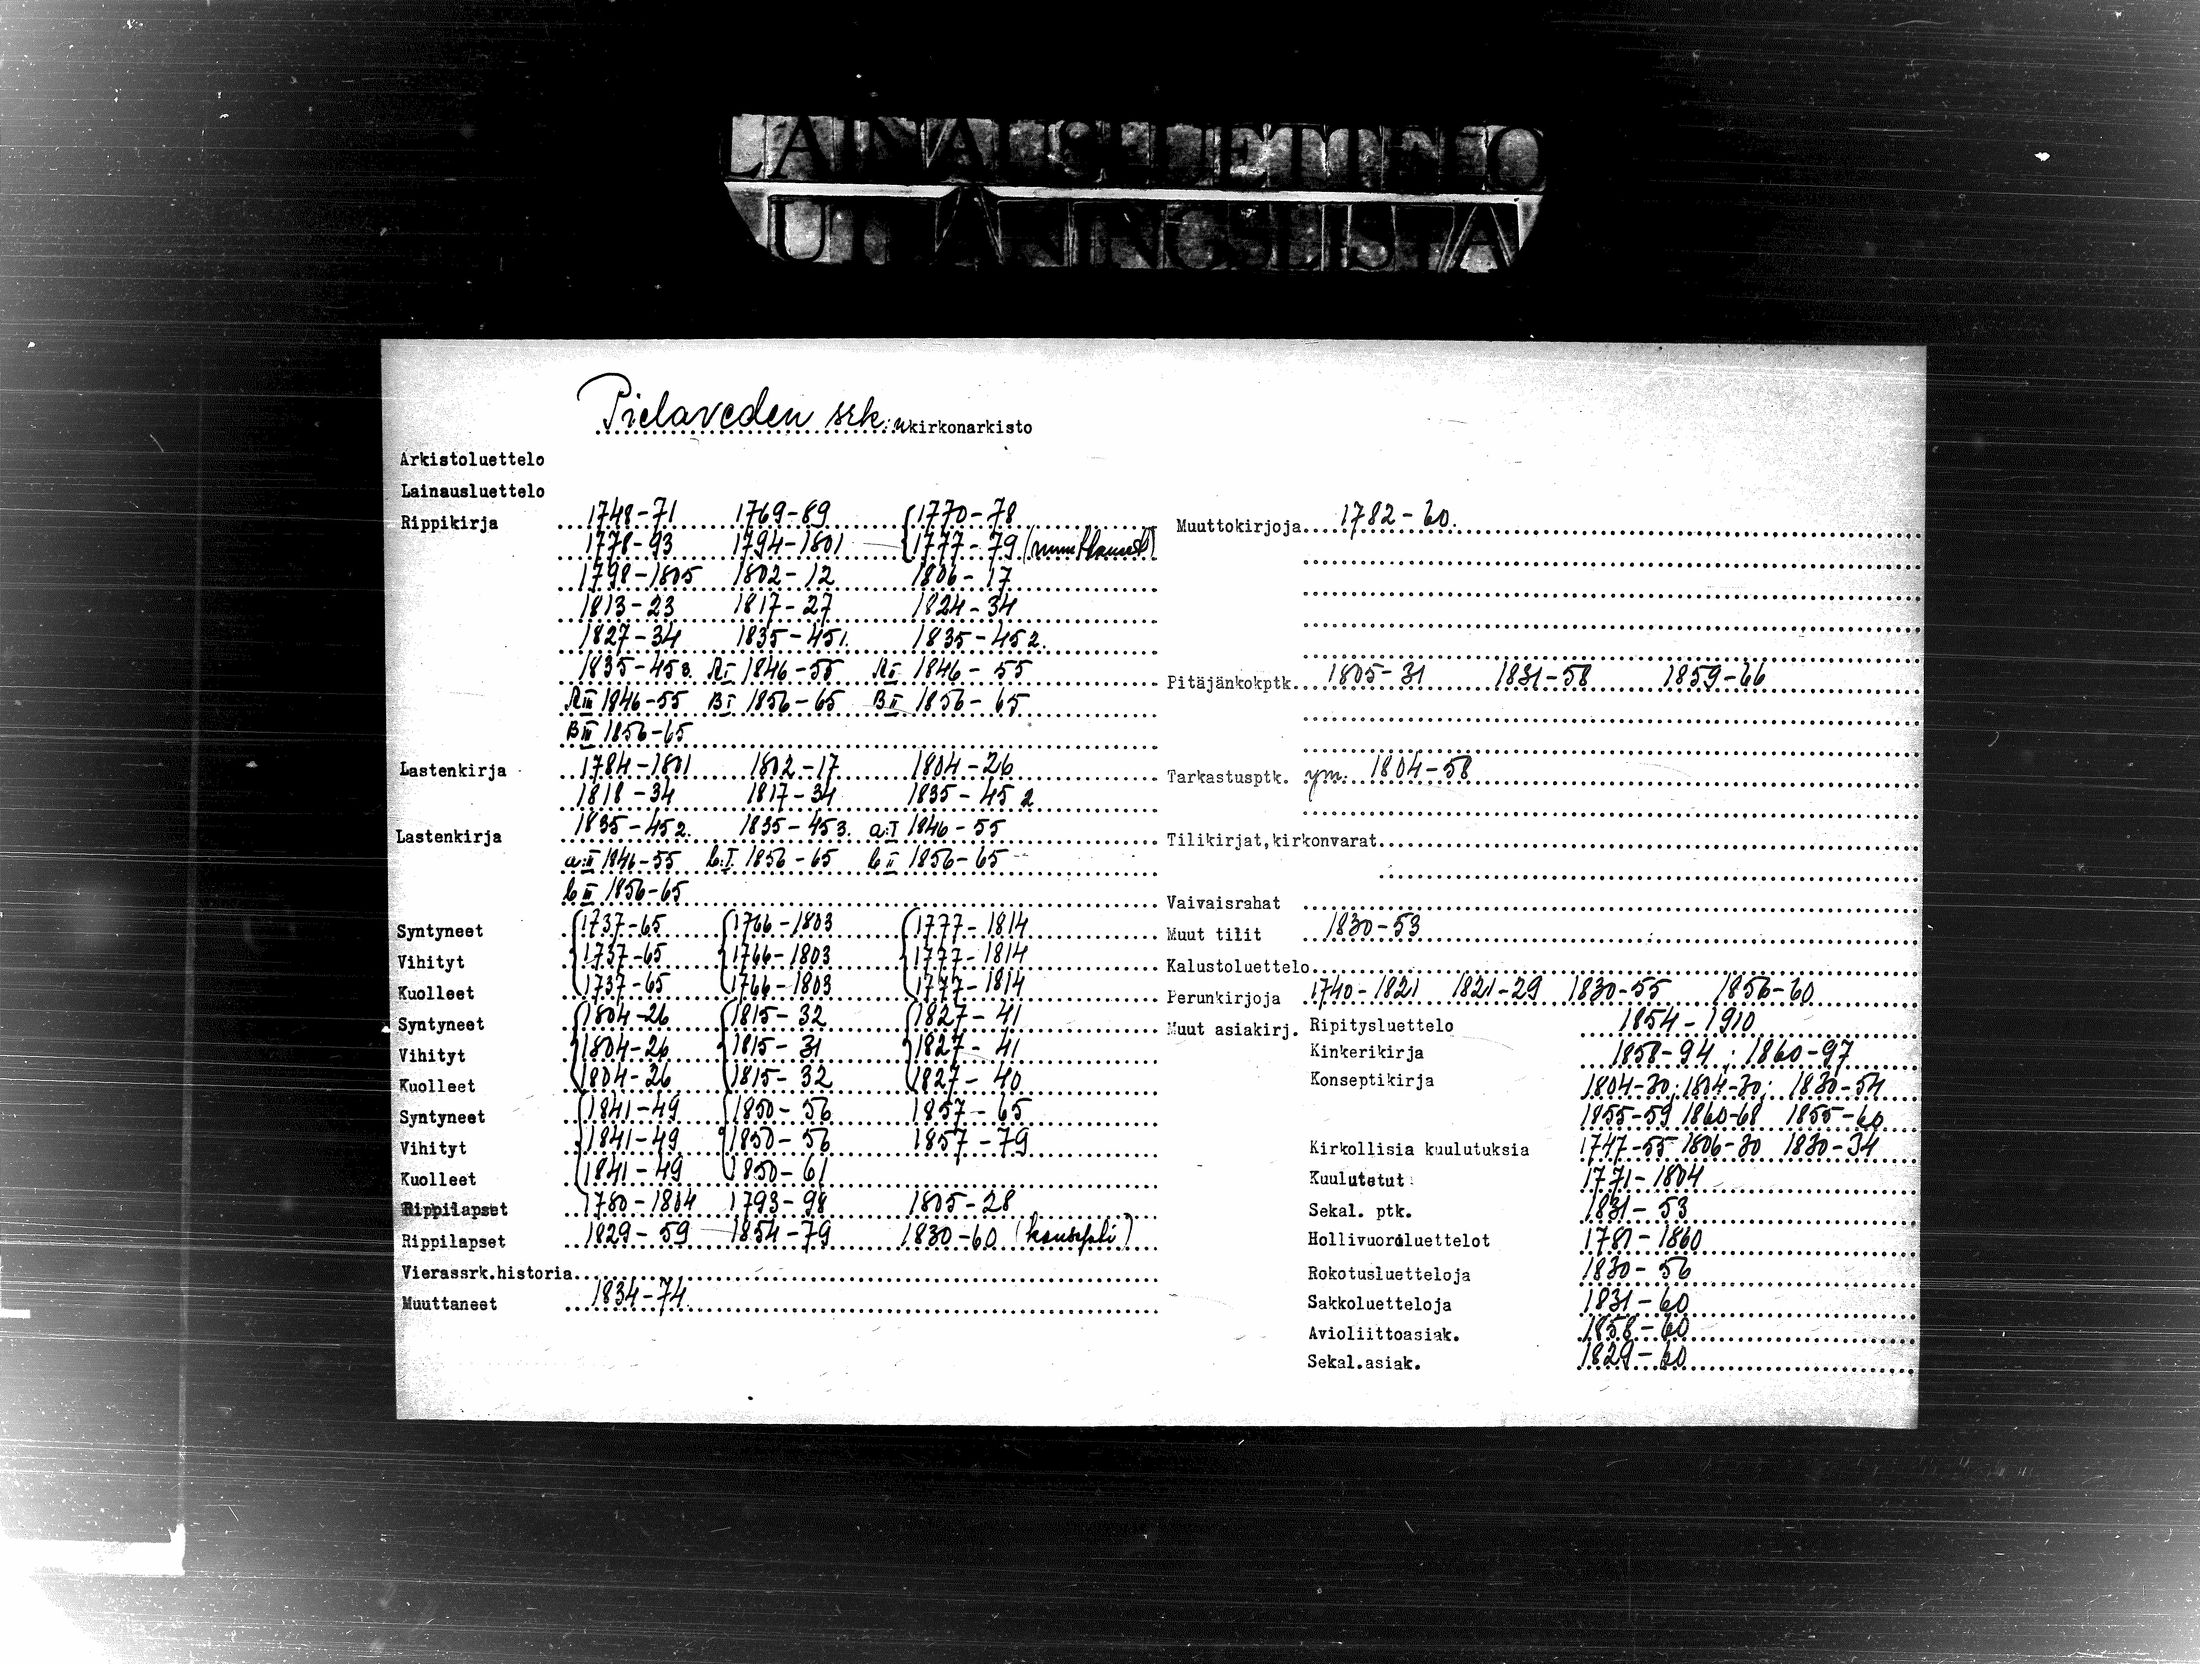 LAINAUSLUETTELO
UTLÅNINGSLISTA
Pielaveden srk:n kirkonarkisto
Arkistoluettelo
Lainausluettelo
Rippikirja 1748-71 1769-89 1770-78
1778-93 1794-1801 1777-79
1798-1805 1802-12 1806-17
1813-23 1817-27 1824-34
1827-34 1835-45 1. 1835-45 2.
1835-45 3. R I 1846-55 R II 1846-55
R III 1846-55 B I 1856-65 B II 1856-65
B III 1856-65
Lastenkirja 1784-1801 1802-17 1804-26
1818-34 1817-34 1835-45 2
Lastenkirja 1835-45 2. 1835-45 3. a:I 1846-55
a:II 1846-55 b:I 1856-65 b II 1856-65
b III 1856-65
Syntyneet 1737-65 1766-1803 1777-1814
Vihityt 1737-65 1766-1803 1777-1814
Kuolleet 1737-65 1766-1803 1777-1814
Syntyneet 1804-26 1815-32 1827-41
Vihityt 1804-26 1815-31 1827-41
Kuolleet 1804-26 1815-32 1827-40
Syntyneet 1841-49 1850-56 1857-65
Vihityt 1841-49 1850-56 1857-79
Kuolleet 1841-49 1850-61
Rippilapset 1780-1804 1793-98 1805-28
Rippilapset 1829-59 1854-79 1830-60 (konsepti)
Vierassrk.historia
Muuttaneet 1834-74
Muuttokirjoja 1782-60.
Pitäjänkokptk. 1805-31 1831-58 1859-66
Tarkastusptk. ym. 1804-58
Tilikirjat,kirkonvarat
Vaivaisrahat
Muut tilit 1830-53
Kalustoluettelo
Perunkirjoja 1740-1821 1821-29 1830-55 1856-60
Muut asiakirj. Ripitysluettelo 1854-1910
Kinkerikirja 1858-94; 1860-97
Konseptikirja 1804-30; 1804-30; 1830-54
1855-59 1860-68 1855-60
Kirkollisia kuulutuksia 1747-55 1806-30 1830-34
Kuulutetut 1771-1804
Sekal. ptk. 1831-53
Hollivuoroluettelot 1781-1860
Rokotusluetteloja 1830-56
Sakkoluetteloja 1831-60
Avioliittoasiak. 1858-60
Sekal.asiak. 1829-60